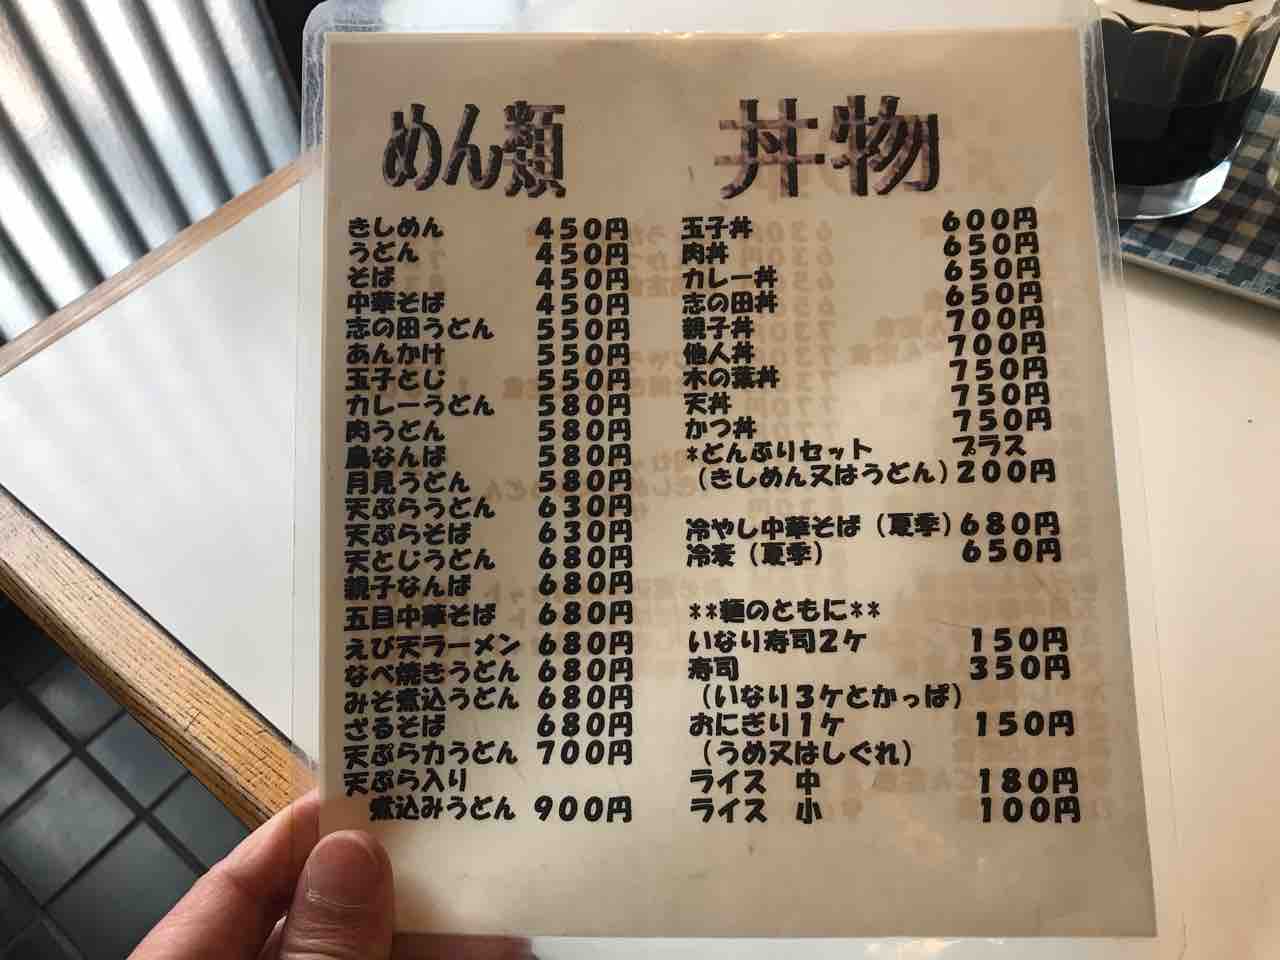 めん類
きしめん 450円
うどん 450円
そば 450円
中華そば 450円
志の田うどん 550円
あんかけ 550円
玉子とじ 550円
カレーうどん 580円
肉うどん 580円
鳥なんば 580円
月見うどん 580円
天ぷらうどん 630円
天ぷらそば 630円
天とじうどん 680円
親子なんば 680円
五目中華そば 680円
えび天ラーメン 680円
なべ焼きうどん 680円
みそ煮込うどん 680円
ざるそば 680円
天ぷら力うどん 700円
天ぷら入り
煮込みうどん 900円
丼物
玉子丼 600円
肉丼 650円
カレー丼 650円
志の田丼 650円
親子丼 700円
他人丼 700円
木の葉丼 750円
天丼 750円
かつ丼 750円
*どんぶりセット プラス
(きしめん又はうどん) 200円
冷やし中華そば (夏季) 680円
冷麦 (夏季) 650円
**麺のともに**
いなり寿司2ケ 150円
寿司 350円
(いなり3ケとかっぱ)
おにぎり1ケ 150円
(うめ又はしぐれ)
ライス 中 180円
ライス 小 100円